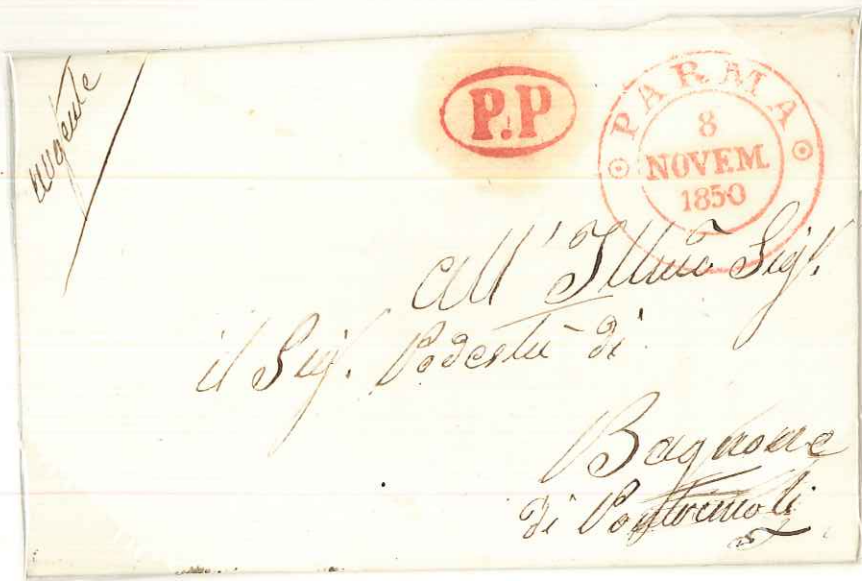 urgente
P.P
PARMA
8
NOVEM.
1850
All' Illmo Sigr.
il Sigr. Podestà di
Bagnone
di Pontremoli